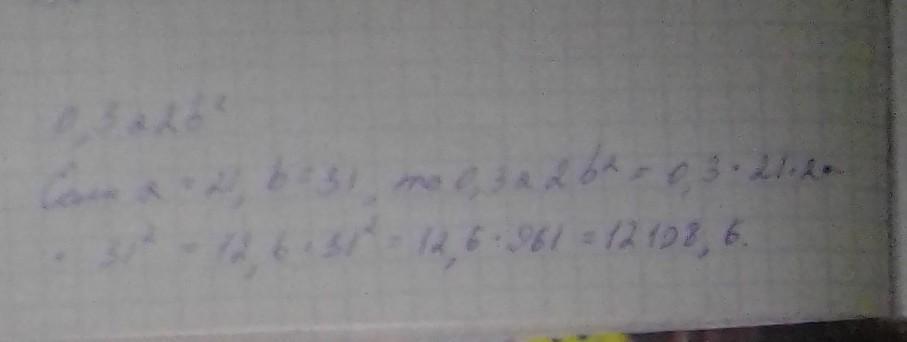 0,3a2b²
Если a = 21, b = 31, то 0,3a2b² = 0,3 · 21 · 2 ·
· 31² = 12,6 · 31² = 12,6 · 961 = 12108,6.